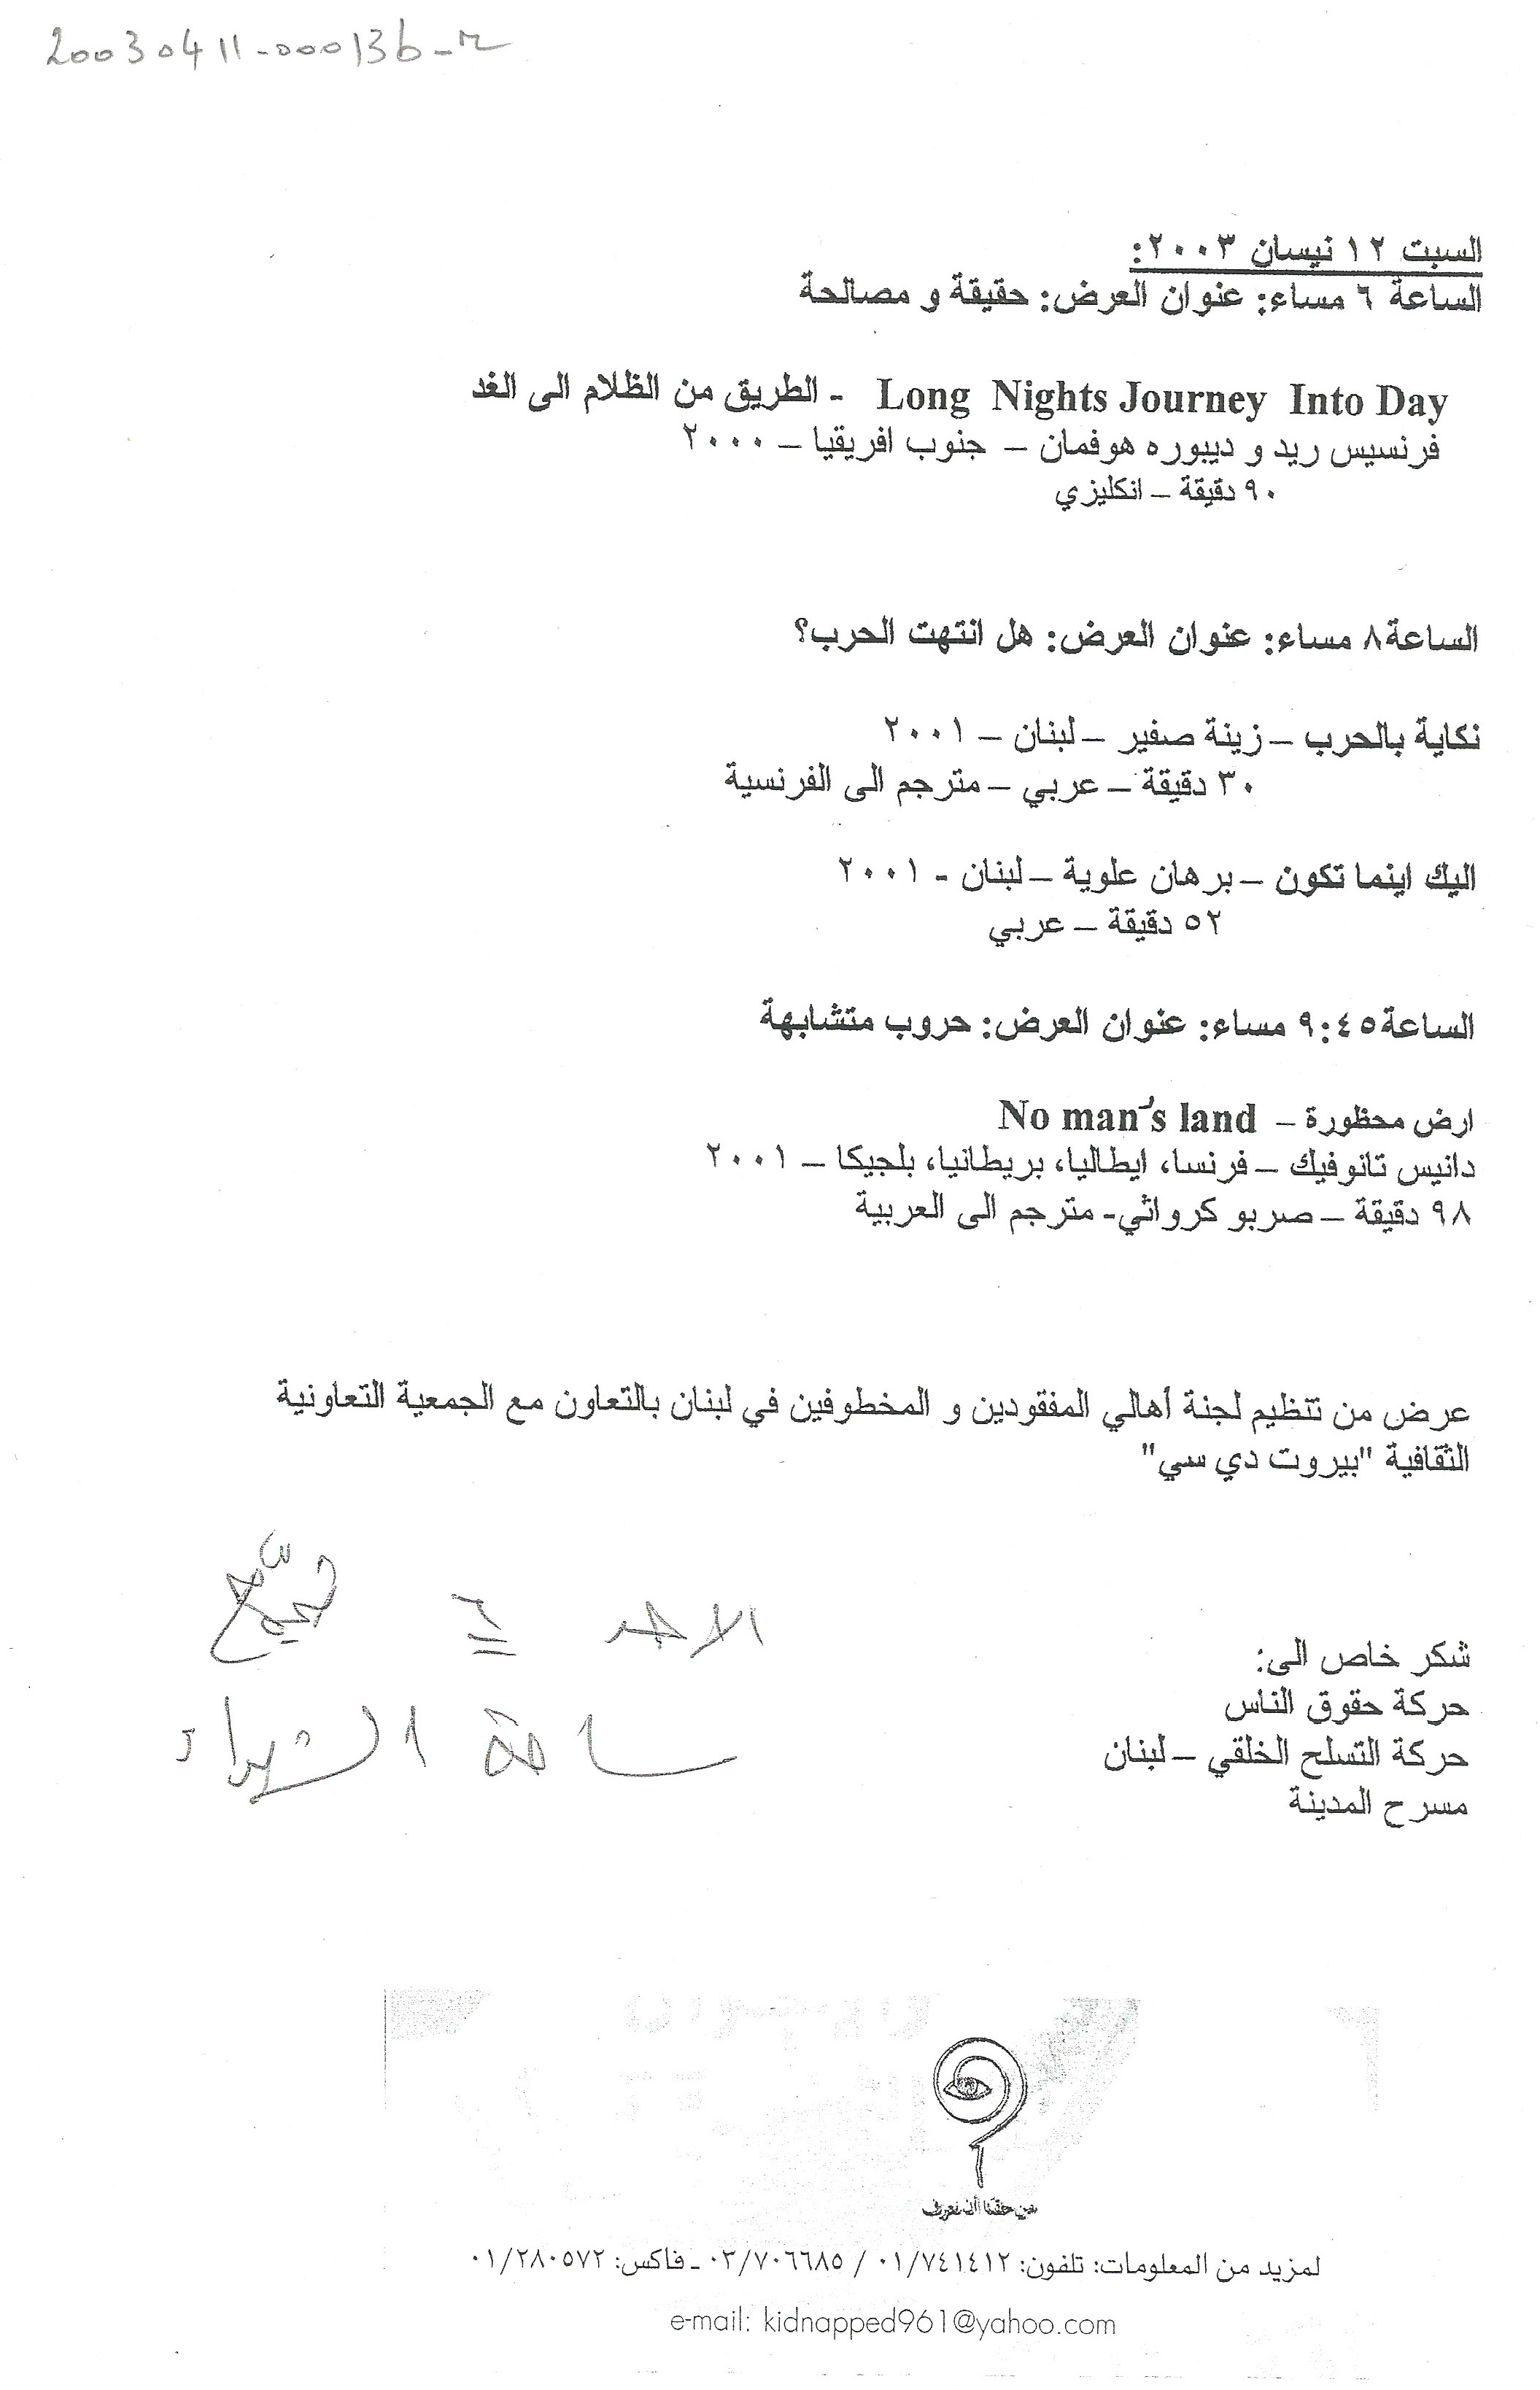 20030411-000136-r
السبت ١٢ نيسان ٢٠٠٣:
الساعة ٦ مساء: عنوان العرض: حقيقة و مصالحة
Long Nights Journey Into Day - الطريق من الظلام الى الغد
فرنسيس ريد و ديبوره هوفمان – جنوب افريقيا – ٢٠٠٠
٩٠ دقيقة – انكليزي
الساعة٨ مساء: عنوان العرض: هل انتهت الحرب؟
نكاية بالحرب – زينة صفير – لبنان – ٢٠٠١
٣٠ دقيقة – عربي – مترجم الى الفرنسية
اليك اينما تكون – برهان علوية – لبنان - ٢٠٠١
٥٢ دقيقة – عربي
الساعة٩:٤٥ مساء: عنوان العرض: حروب متشابهة
ارض محظورة – No man's land
دانيس تانوفيك – فرنسا، ايطاليا، بريطانيا، بلجيكا – ٢٠٠١
٩٨ دقيقة – صربو كرواثي- مترجم الى العربية
عرض من تنظيم لجنة أهالي المفقودين و المخطوفين في لبنان بالتعاون مع الجمعية التعاونية
الثقافية "بيروت دي سي"
الاحد ٦ تجمّع
ساحة الشهداء
شكر خاص الى:
حركة حقوق الناس
حركة التسلح الخلقي – لبنان
مسرح المدينة
من حقنا أن نعرف
لمزيد من المعلومات: تلفون: ٠١/٧٤١٤١٢ / ٠٣/٧٠٦٦٨٥ - فاكس: ٠١/٢٨٠٥٧٢
e-mail: kidnapped961@yahoo.com